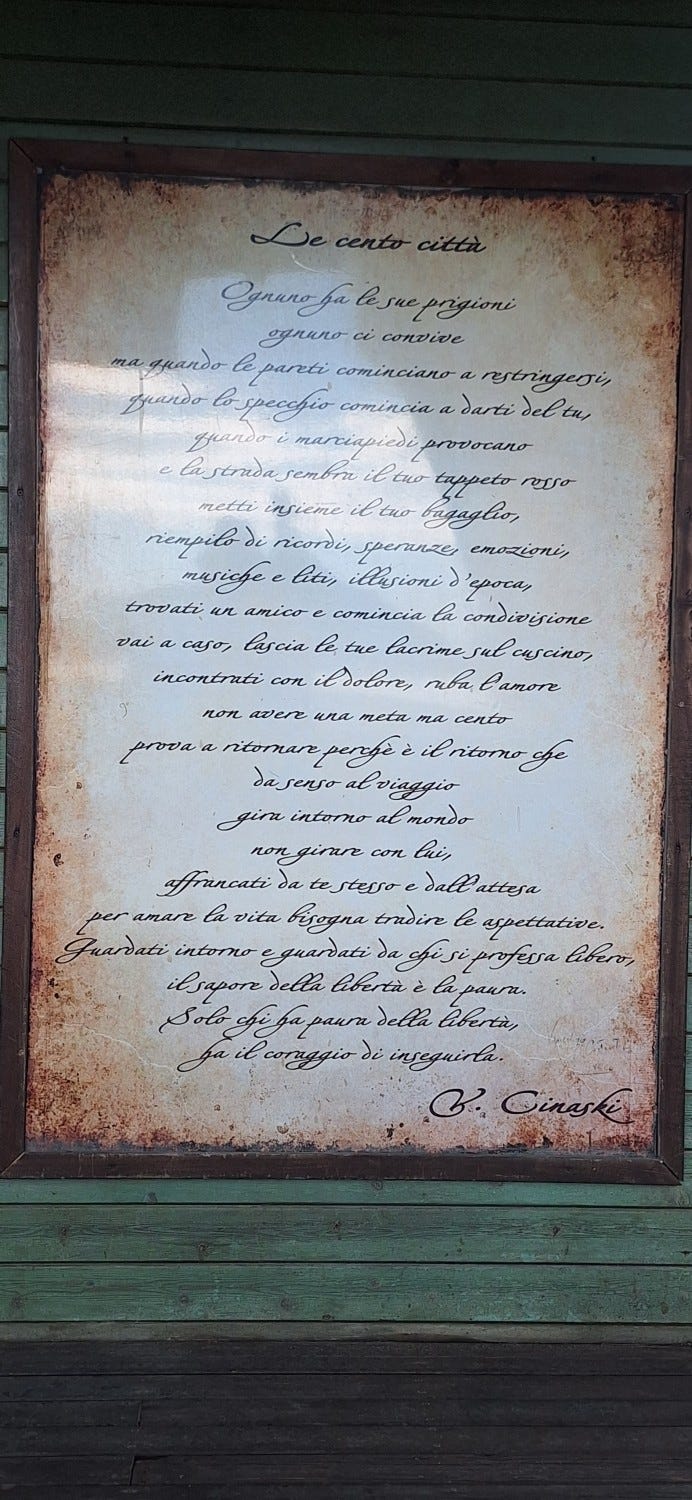 Le cento città
Ognuno ha le sue prigioni
ognuno ci convive
ma quando le pareti cominciano a restringersi,
quando lo specchio comincia a darti del tu,
quando i marciapiedi provocano
e la strada sembra il tuo tappeto rosso
metti insieme il tuo bagaglio,
riempilo di ricordi, speranze, emozioni,
musiche e liti, illusioni d'epoca,
trovati un amico e comincia la condivisione
vai a caso, lascia le tue lacrime sul cuscino,
incontrati con il dolore, ruba l'amore
non avere una meta ma cento
prova a ritornare perchè è il ritorno che
da senso al viaggio
gira intorno al mondo
non girare con lui,
affrancati da te stesso e dall'attesa
per amare la vita bisogna tradire le aspettative.
Guardati intorno e guardati da chi si professa libero,
il sapore della libertà è la paura.
Solo chi ha paura della libertà,
ha il coraggio di inseguirla.
V. Cinaski